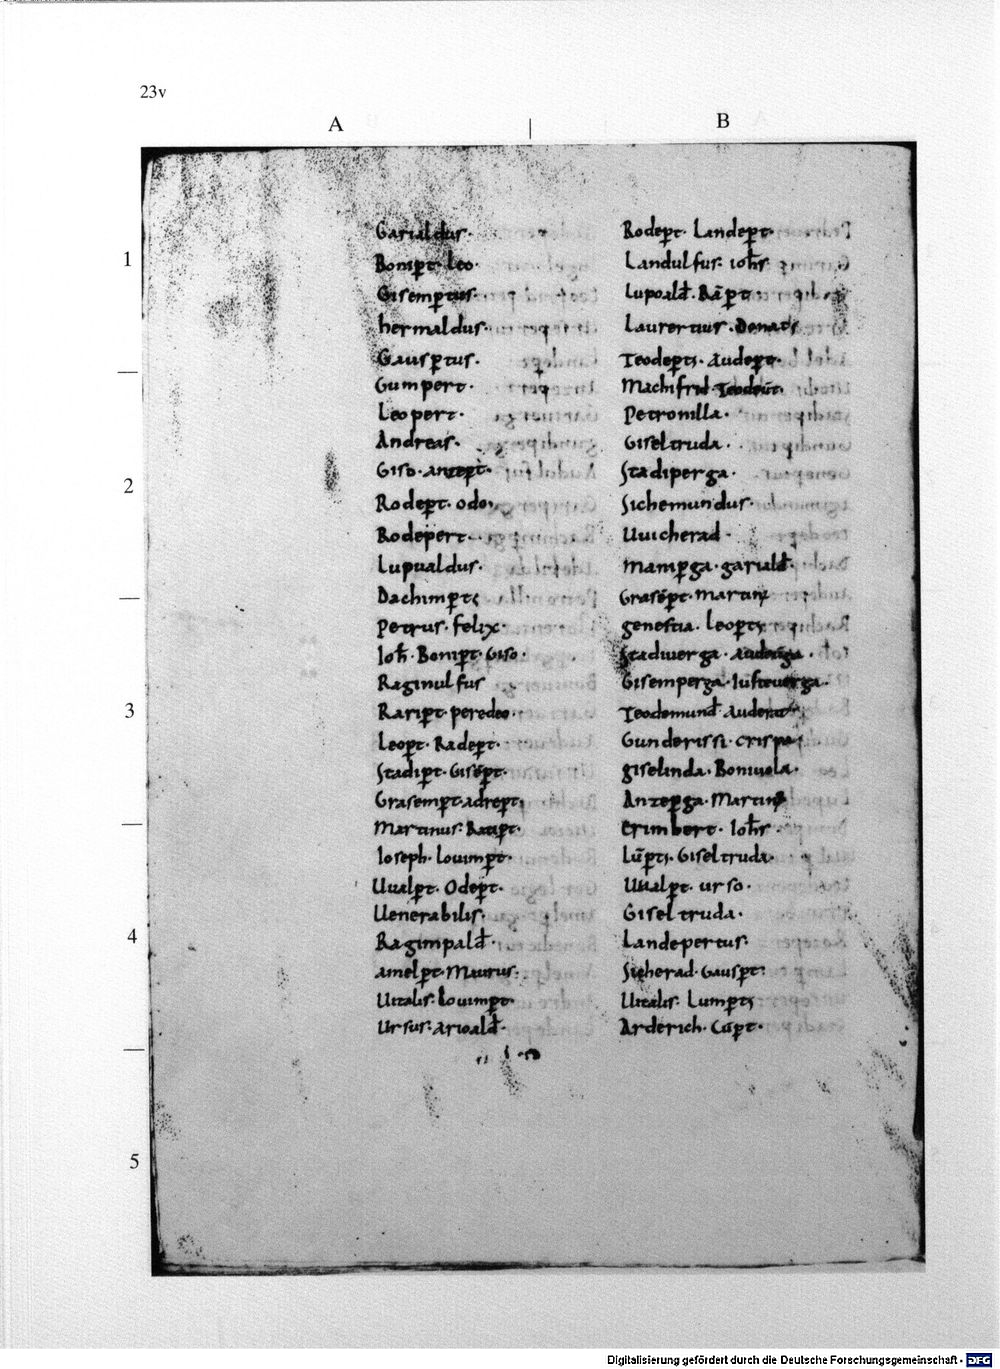 23v
A | B
1
2
3
4
5
Garialdus·
Bonip̄t· Leo·
Gisemp̄tus·
hermaldus·
Gausp̄tus·
Gumpert·
Leopert·
Andreas·
Giso· anzep̄t·
Rodep̄t· odo·
Rodepert·
Lupualdus·
Dachimp̄ts
Petrus· felix·
Ioh̄· Bonip̄t· Giso·
Raginulfus
Rarip̄t· peredeo·
Leop̄t· Radep̄t·
Stadip̄t· Gisēp̄t·
Grasemp̄t· adrep̄t·
Martinus· Ratip̄t·
Ioseph· Iouimp̄t·
Uualp̄t· Odep̄t·
Uenerabilis·
Ragimpald̄·
amelp̄t· Maurus·
Uitalis· Iouimp̄t·
Ursus· arioald̄·
Rodep̄t· Landep̄t·
Landulfus· ioh̄s·
Lupoald̄· Rāp̄t·
Laurentius· Donats
Teodep̄ts· Audep̄t·
Machifrid
Petronilla·
Giseltruda·
Stadiperga·
Sichemundus·
Uuicherad·
Mamp̄ga· gariald̄·
Grasēp̄t· martin
genesia· Leop̄ts
Stadiuerga·
Gisemperga· Iusteuerga·
Teodemund̄
Gunderissi· crispo
giselinda· Boniuola·
Anzep̄ga· Martin
Erimbert· Ioh̄s·
Lūp̄ts· Giseltruda·
Uualp̄t· urso·
Giseltruda·
Landepertus·
Sicherad· Gausp̄t·
Uitalis· Lump̄ts
Arderich· Cūp̄t·
Digitalisierung gefördert durch die Deutsche Forschungsgemeinschaft - DFG